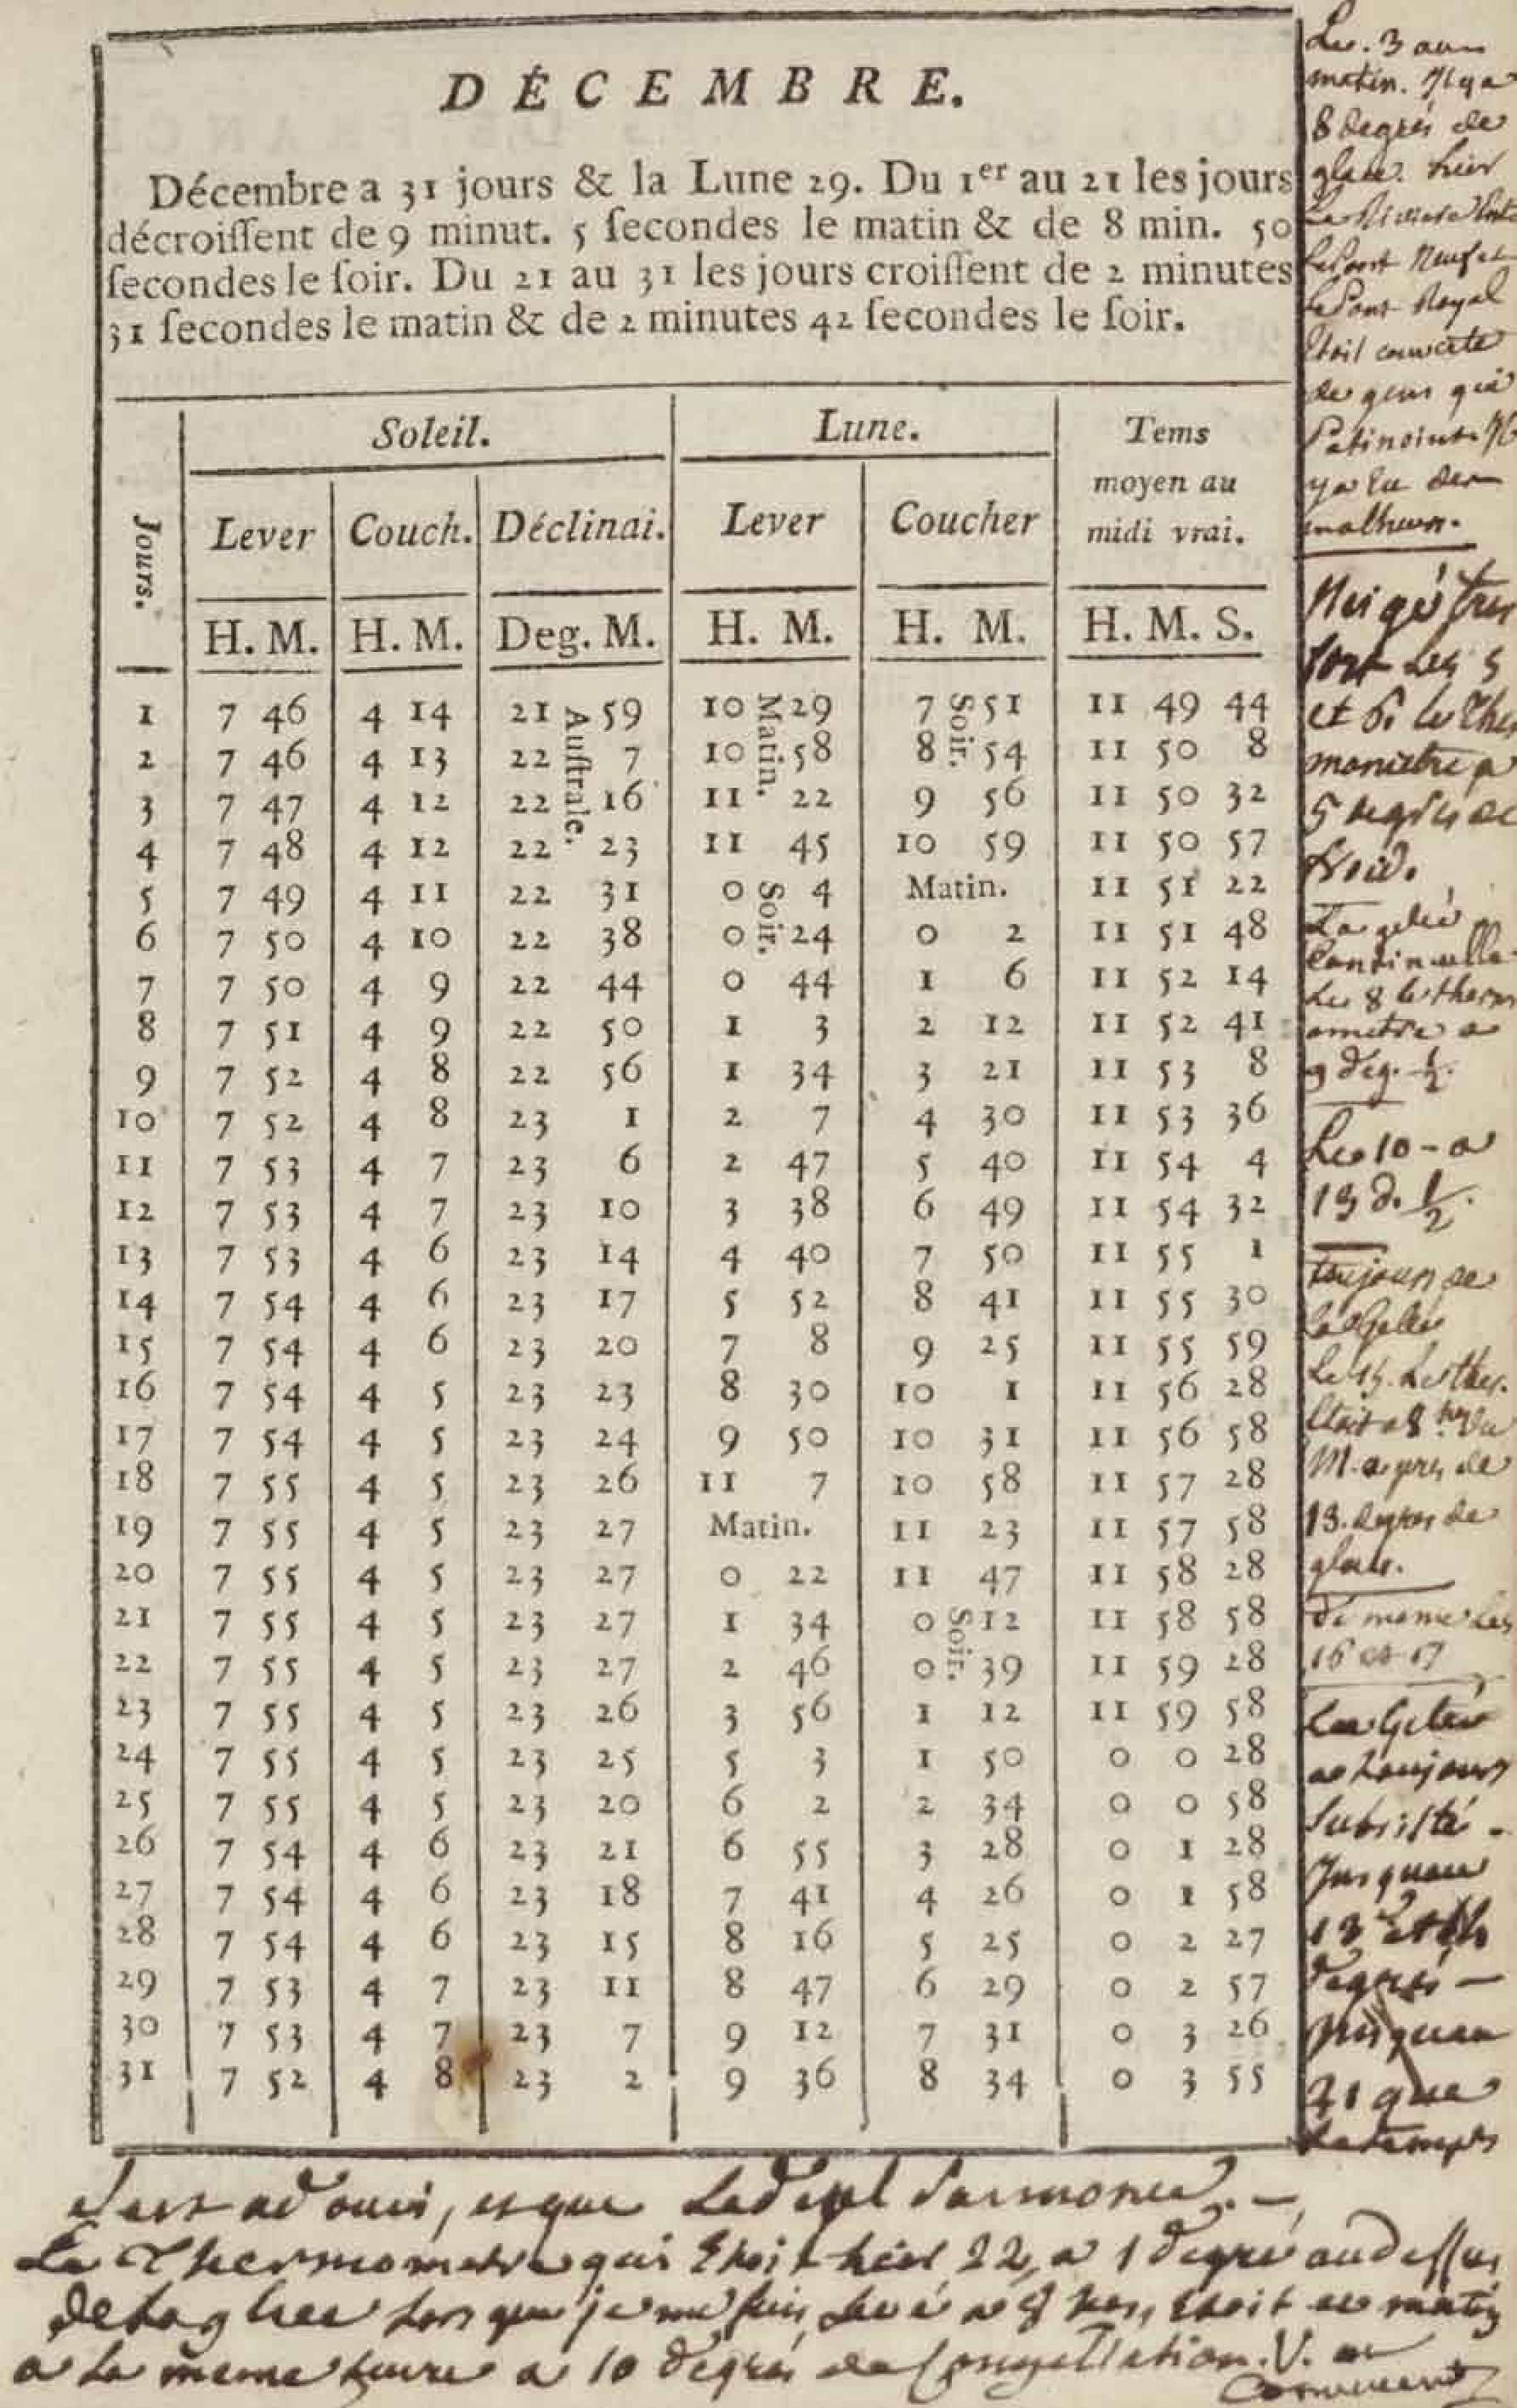 DÉCEMBRE.
Décembre a 31 jours & la Lune 29. Du 1er au 21 les jours
décroiſſent de 9 minut. 5 ſecondes le matin & de 8 min. 50
ſecondes le ſoir. Du 21 au 31 les jours croiſſent de 2 minutes
31 ſecondes le matin & de 2 minutes 42 ſecondes le ſoir.
Jours. Soleil. Lune. Tems moyen au midi vrai.
Lever Couch. Déclinai. Lever Coucher
H. M. H. M. Deg. M. H. M. H. M. H. M. S.
1 7 46 4 14 21 Auſtrale. 59 10 Matin. 29 7 Soir. 51 11 49 44
2 7 46 4 13 22 7 10 58 8 54 11 50 8
3 7 47 4 12 22 16 11 22 9 56 11 50 32
4 7 48 4 12 22 23 11 45 10 59 11 50 57
5 7 49 4 11 22 31 0 Soir. 4 Matin. 11 51 22
6 7 50 4 10 22 38 0 24 0 2 11 51 48
7 7 50 4 9 22 44 0 44 1 6 11 52 14
8 7 51 4 9 22 50 1 3 2 12 11 52 41
9 7 52 4 8 22 56 1 34 3 21 11 53 8
10 7 52 4 8 23 1 2 7 4 30 11 53 36
11 7 53 4 7 23 6 2 47 5 40 11 54 4
12 7 53 4 7 23 10 3 38 6 49 11 54 32
13 7 53 4 6 23 14 4 40 7 50 11 55 1
14 7 54 4 6 23 17 5 52 8 41 11 55 30
15 7 54 4 6 23 20 7 8 9 25 11 55 59
16 7 54 4 5 23 23 8 30 10 1 11 56 28
17 7 54 4 5 23 24 9 50 10 31 11 56 58
18 7 55 4 5 23 26 11 7 10 58 11 57 28
19 7 55 4 5 23 27 Matin. 11 23 11 57 58
20 7 55 4 5 23 27 0 22 11 47 11 58 28
21 7 55 4 5 23 27 1 34 0 Soir. 12 11 58 58
22 7 55 4 5 23 27 2 46 0 39 11 59 28
23 7 55 4 5 23 26 3 56 1 12 11 59 58
24 7 55 4 5 23 25 5 3 1 50 0 0 28
25 7 55 4 5 23 20 6 2 2 34 0 0 58
26 7 54 4 6 23 21 6 55 3 28 0 1 28
27 7 54 4 6 23 18 7 41 4 26 0 1 58
28 7 54 4 6 23 15 8 16 5 25 0 2 27
29 7 53 4 7 23 11 8 47 6 29 0 2 57
30 7 53 4 7 23 7 9 12 7 31 0 3 26
31 7 52 4 8 23 2 9 36 8 34 0 3 55
Le. 3 au
matin. Il y a
8 degrés de
glace. hier
la Riviere
le pont Neuf et
le Pont Royal
Etoit couverte
de gens qui
Patinoient. Il
y a Eu des
malheurs.
Neigé tres
fort Les 5
et 6. le Ther
mometre a
5 degrés de
froid.
La gelée
Continuelle
Le 8 le therm
ometre a
9 deg. ½.
Le 10 - a
13 d. ½.
toujours de
la Gelée
Le 15. Le ther.
Etoit a 8 hrs du
M. a pres de
13. degres de
glace.
de meme les
16 et 17
La Gelée
a toujours
subsisté -
Jusquau
13 Et
degrés -
jusquau
21 que
le temps
s'est adouci, et que
Le Thermometre qui Etoit hier 22, a 1 degré au dessus
de la glace lors que je me suis levé a 8 hrs, Etoit ce matin
a la meme heure a 10 degrés de Congellation. V. au